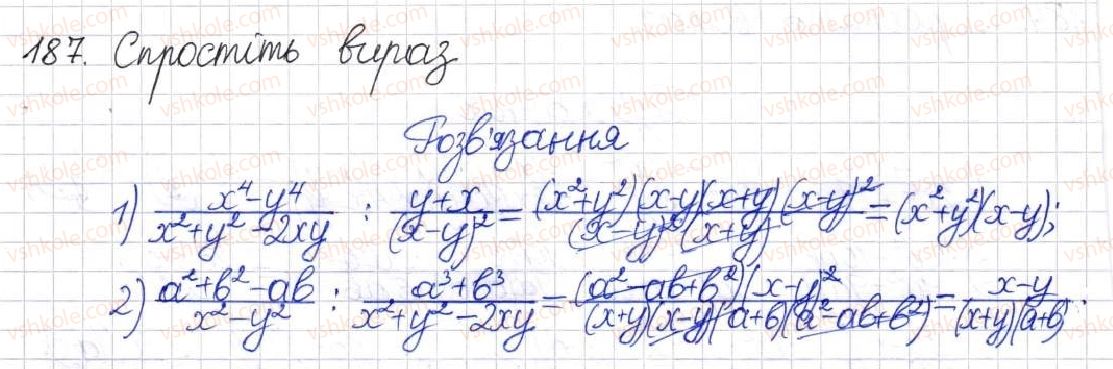 187. Спростіть вираз
Розв'язання
1) \frac{x^4-y^4}{x^2+y^2-2xy} : \frac{y+x}{(x-y)^2} = \frac{(x^2+y^2)(x-y)(x+y)(x-y)^2}{(x-y)^2(x+y)} = (x^2+y^2)(x-y);
2) \frac{a^2+b^2-ab}{x^2-y^2} : \frac{a^3+b^3}{x^2+y^2-2xy} = \frac{(a^2-ab+b^2)(x-y)^2}{(x+y)(x-y)(a+b)(a^2-ab+b^2)} = \frac{x-y}{(x+y)(a+b)}.